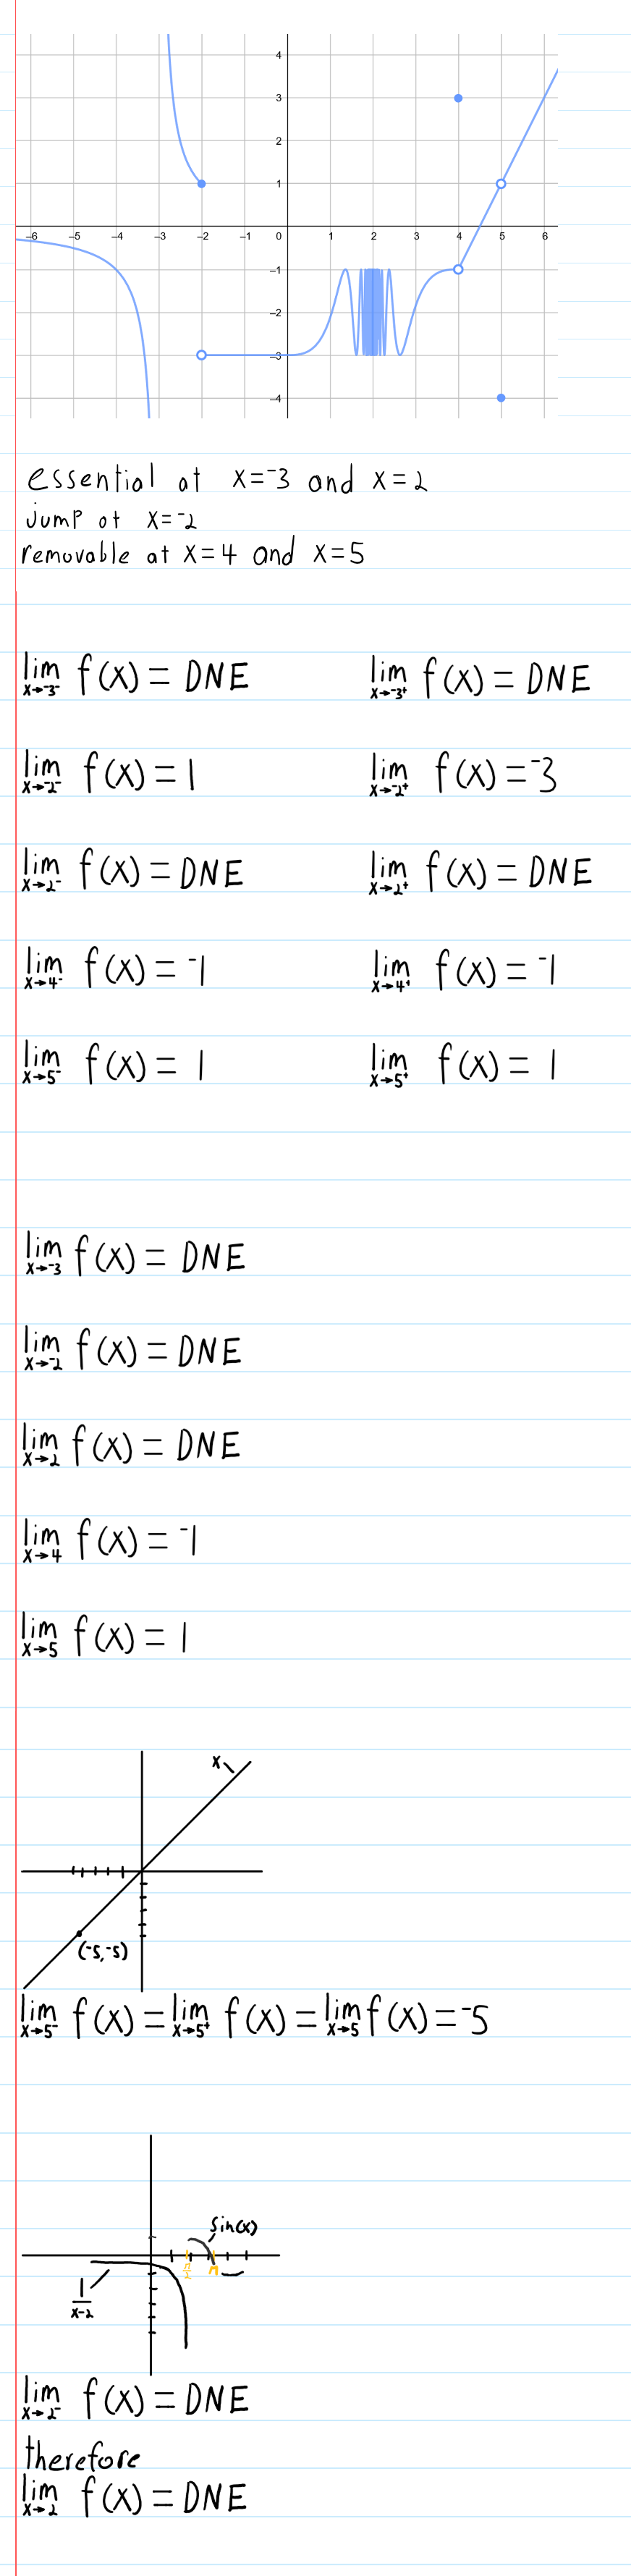 4
3
2
1
−6 −5 −4 −3 −2 −1 0 1 2 3 4 5 6
−1
−2
−3
−4
essential at x=⁻3 and x=2
jump at x=⁻2
removable at x=4 and x=5
lim x→⁻3⁻ f(x) = DNE lim x→⁻3⁺ f(x) = DNE
lim x→⁻2⁻ f(x) = 1 lim x→⁻2⁺ f(x) = ⁻3
lim x→2⁻ f(x) = DNE lim x→2⁺ f(x) = DNE
lim x→4⁻ f(x) = ⁻1 lim x→4⁺ f(x) = ⁻1
lim x→5⁻ f(x) = 1 lim x→5⁺ f(x) = 1
lim x→⁻3 f(x) = DNE
lim x→⁻2 f(x) = DNE
lim x→2 f(x) = DNE
lim x→4 f(x) = ⁻1
lim x→5 f(x) = 1
x
(⁻5,⁻5)
lim x→5⁻ f(x) = lim x→5⁺ f(x) = lim x→5 f(x) = ⁻5
sin(x)
π/2 π
1/(x−2)
lim x→2⁻ f(x) = DNE
therefore
lim x→2 f(x) = DNE